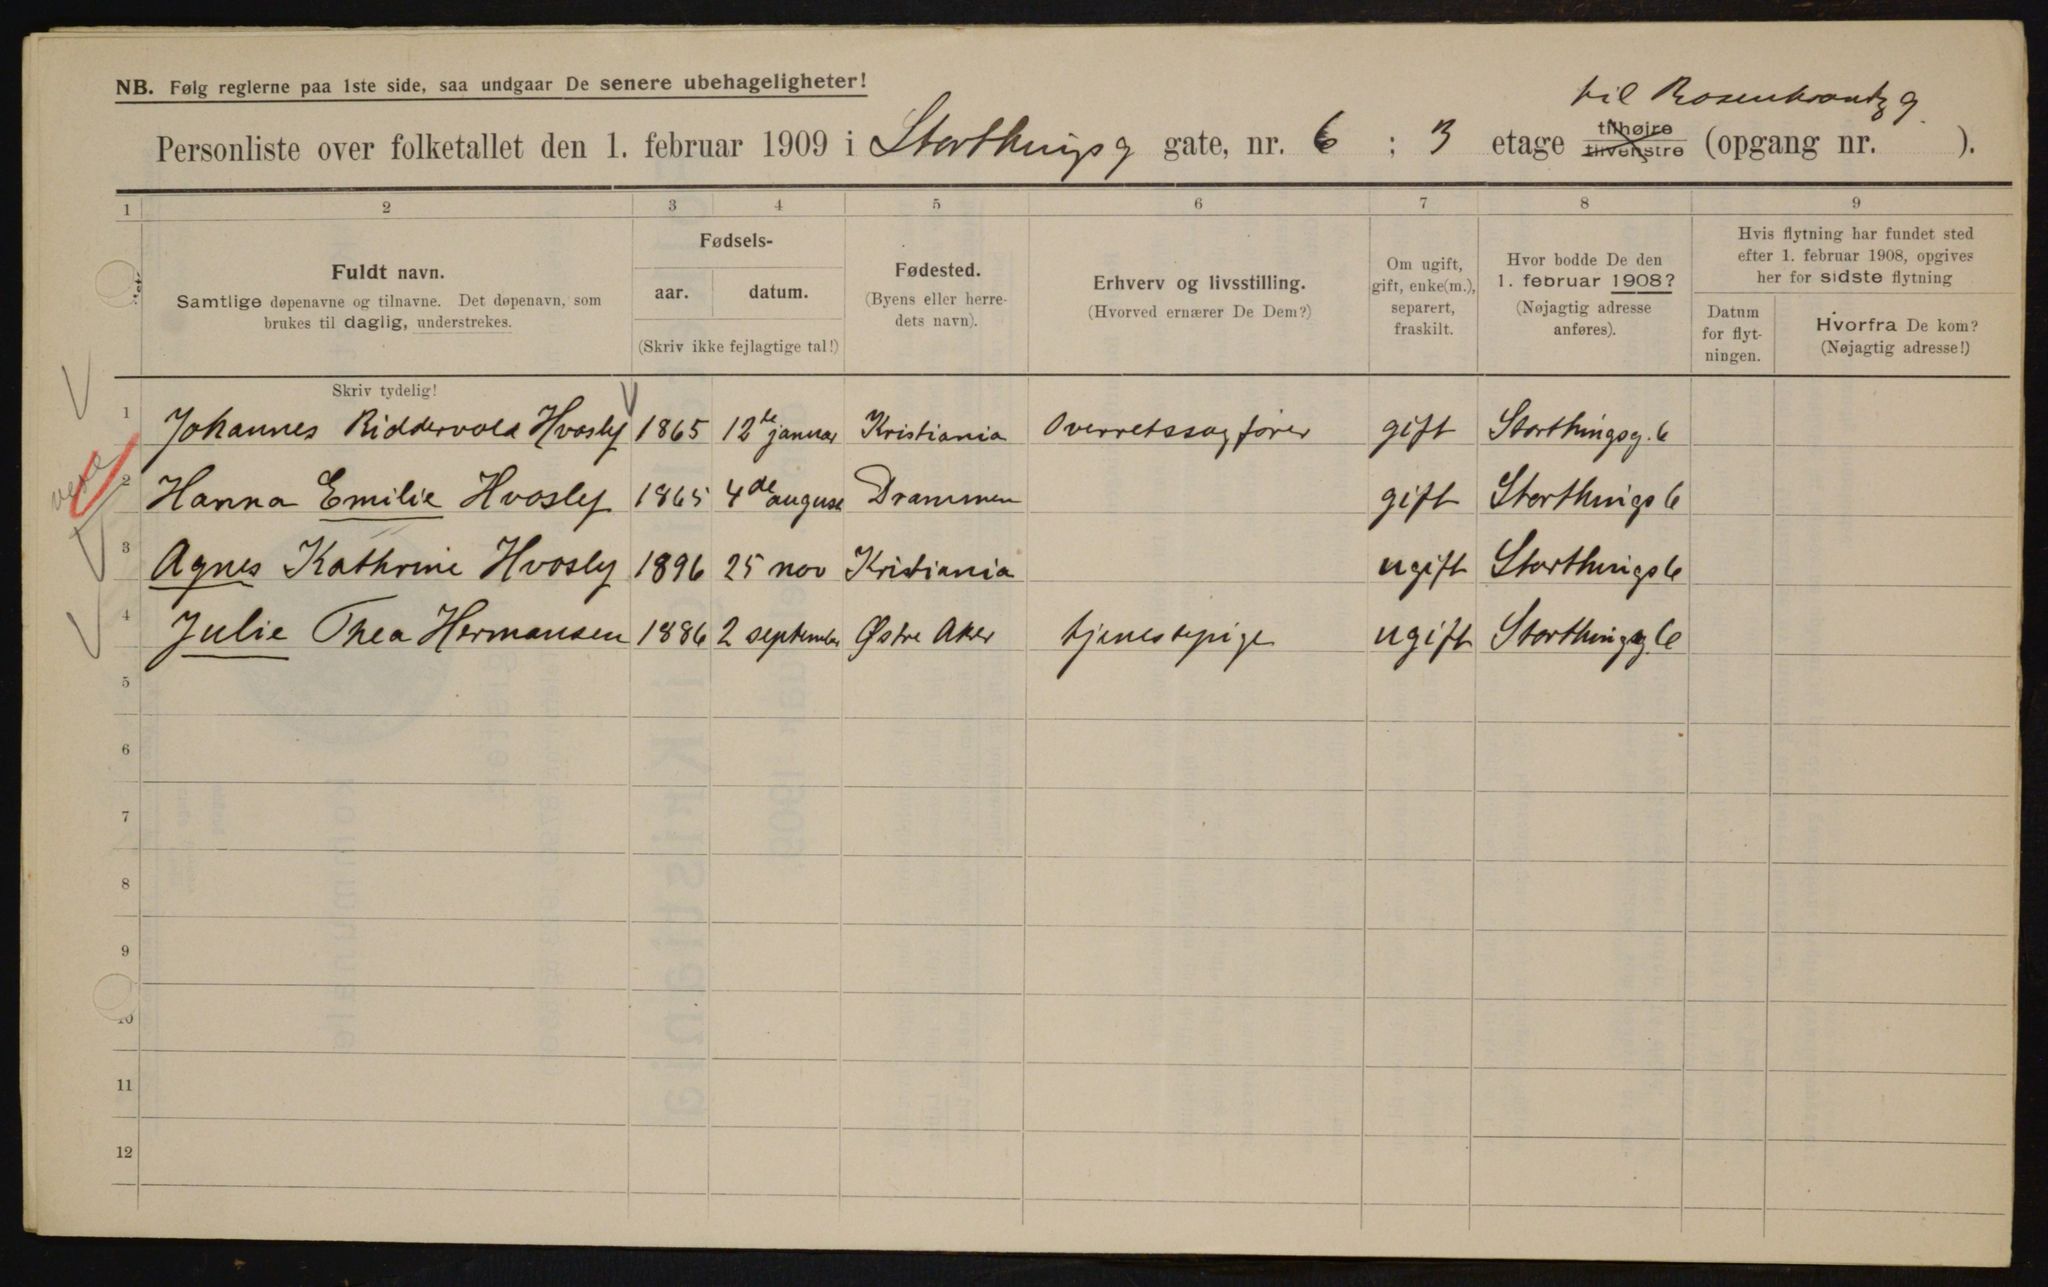 NB. Følg reglerne paa 1ste side, saa undgaar De senere ubehageligheter!
til Rosenkrantz g
Personliste over folketallet den 1. februar 1909 i Storthingsg gate, nr. 6 ; 3 etage tilhøire tilvenstre (opgang nr. ).
1 2 3 4 5 6 7 8 9
Fuldt navn.
Samtlige døpenavne og tilnavne. Det døpenavn, som
brukes til daglig, understrekes.
Fødsels-
aar. datum.
(Skriv ikke fejlagtige tal!)
Fødested.
(Byens eller herre-
dets navn).
Erhverv og livsstilling.
(Hvorved ernærer De Dem?)
Om ugift,
gift, enke(m.),
separert,
fraskilt.
Hvor bodde De den
1. februar 1908?
(Nøjagtig adresse
anføres).
Hvis flytning har fundet sted
efter 1. februar 1908, opgives
her for sidste flytning
Datum
for flyt-
ningen.
Hvorfra De kom?
(Nøjagtig adresse!)
Skriv tydelig!
1 Johannes Riddervold Hvosly 1865 12te januar Kristiania Overretssagfører gift Storthingsg. 6
2 Hanna Emilie Hvosly 1865 4de august Drammen gift Storthings 6
3 Agnes Kathrine Hvosly 1896 25 nov Kristiania ugift Storthings 6
4 Julie Thea Hermansen 1886 2 september Østre Aker tjenestepige ugift Storthingsg. 6
5
6
7
8
9
10
11
12